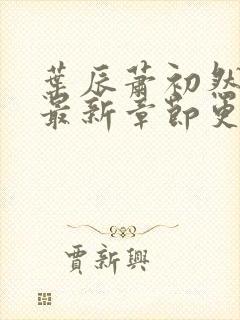 葉辰蕭初然
最新章節更
賈新興